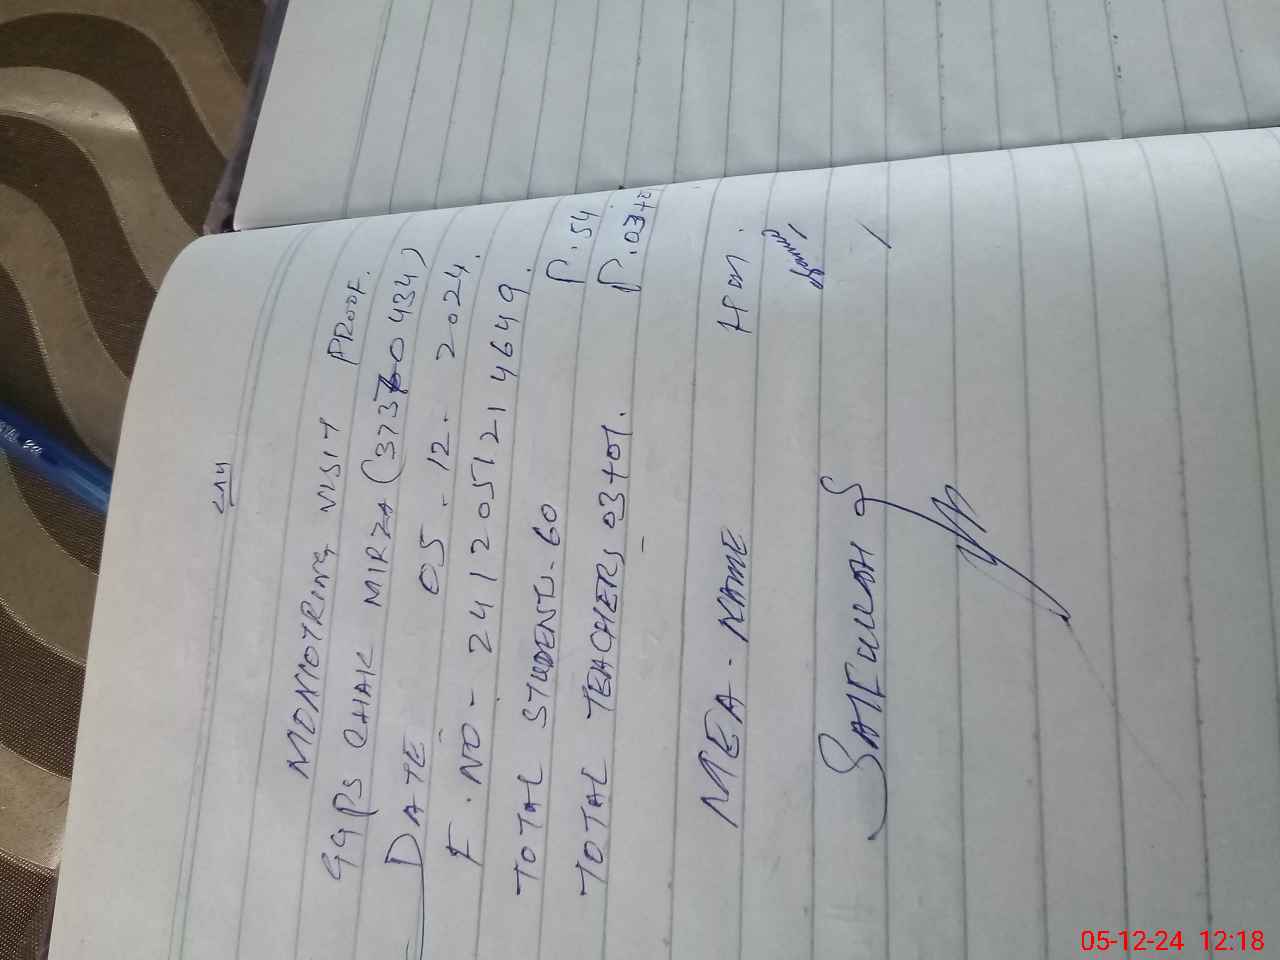 MONIOTRING VISIT PROOF.
GGPS CHAK MIRZA (37370434)
DATE 05.12.2024.
F.NO- 241205121 4649.
TOTAL STUDENTS-60 P.54
TOTAL TEACHERS 03+01. P.03+0
MEA-NAME HM.
SAIFULLAH
05-12-24 12:18